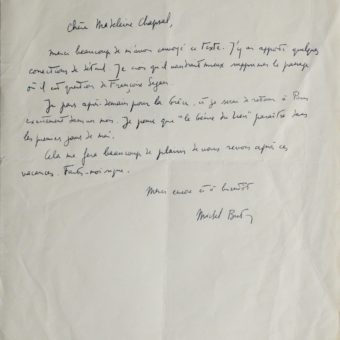 Chère Madeleine Chapsal,
merci beaucoup de m'avoir envoyé ce texte. J'y ai apporté quelques
corrections de détail. Je crois qu'il vaudrait mieux supprimer le passage
où il est question de Françoise Sagan
Je pars après-demain pour la Grèce, et je serai de retour à Paris
exactement dans un mois. Je pense que "le Génie du lieu" paraîtra dans
les premiers jours de mai.
Cela me fera beaucoup de plaisir de vous revoir après ces
vacances. Faites-moi signe.
Merci encore et à bientôt
Michel Butor